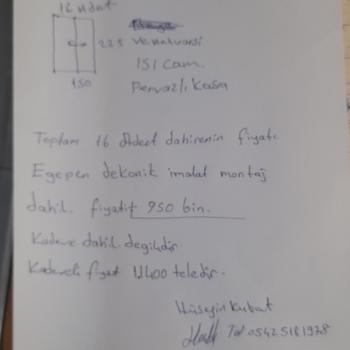 16 Adet
225 vernuvarsi
ISI Cam.
150 Pervazlı Kasa
Toplam 16 Adeet dahirenin fiyatı
Egepen dekonik imalat montaj
dahil. fiyatıf 950 bin.
Kadeve dahil değildir.
Kadeveli fiyat 1.1400 teledir.
Hüseyin Kubat
Tel 05425181978